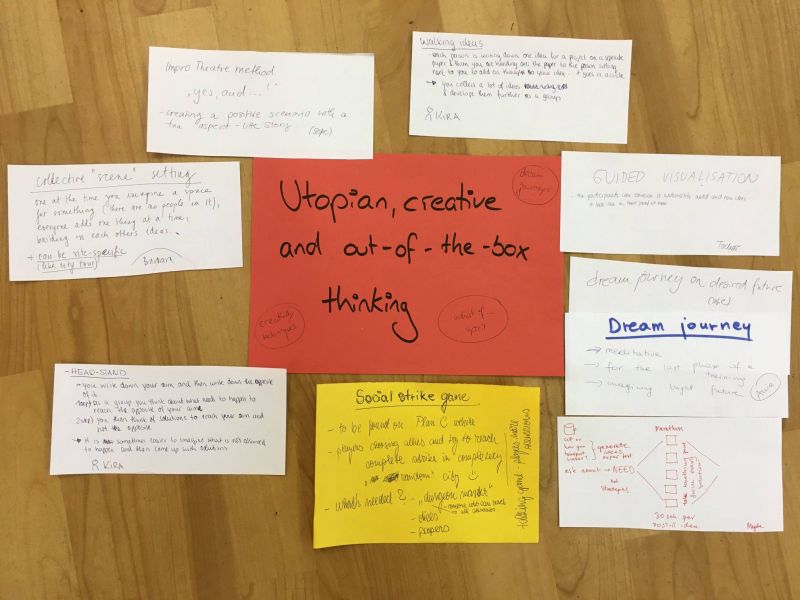 Impro Theatre method
"yes, and...!"
- creating a positive scenario with a
aspect - little story
walking ideas
- each person is writing down one idea for a project on a separate
paper & then you are handing over the paper to the person sitting
next to you to add on thoughts to your idea - it goes in a circle
→ you collect a lot of ideas
& develop them further as a group
KIRA
collective "scene" setting
one at the time you imagine a space
for something (there are no people in it),
everyone adds one thing at a time,
building on each others ideas.
+ can be site-specific
Utopian, creative
and out-of-the-box
thinking
dream
journeys
creativity
techniques
what if...
spirit
GUIDED VISUALISATION
- the participants can envision a
dream journey on desired future
Dream journey
→ meditative
→ for the last phase of a
training
→ imagining bright future
- HEAD-STAND
→ you write down your aim and then write down the opposite
of it
as a group you think about what needs to happen to
reach the opposite of your aim
you then think of solutions to reach your aim and
not the opposite
→ it is sometimes easier to imagine what is not supposed
to happen and then come up with solutions
KIRA
Social strike game
- to be found on Plan C website
- players choosing allies and try to reach
complete strike in
"random" city
- what's needed? - "dungeon master"
- dices
- papers
talking game
generate
ideas
ask about → NEED
not
strategies
Marathon
30 sec per
POST-it idea